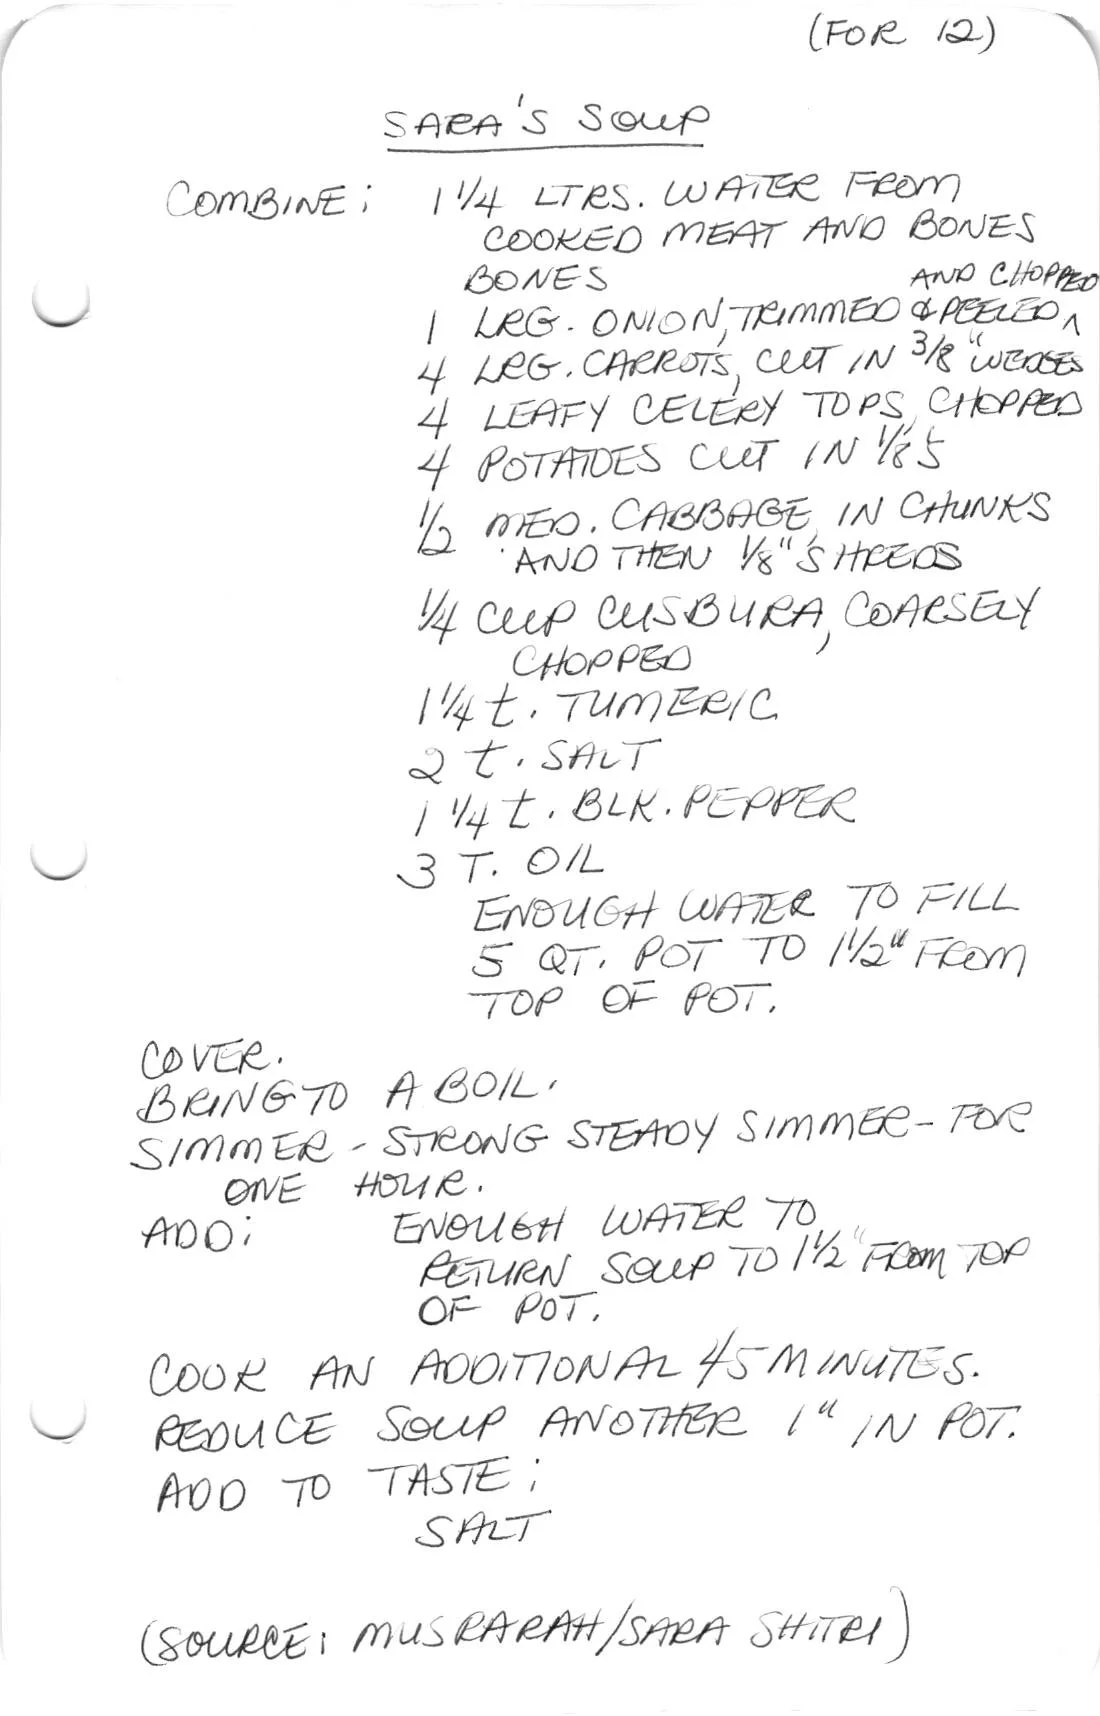 (FOR 12)
SARA'S SOUP
COMBINE: 1 1/4 LTRS. WATER FROM
COOKED MEAT AND BONES
BONES
AND CHOPPED
1 LRG. ONION, TRIMMED & PEELED ^
4 LRG. CARROTS, CUT IN 3/8" WEDGES
4 LEAFY CELERY TOPS, CHOPPED
4 POTATOES CUT IN 1/8'S
1/2 MED. CABBAGE, IN CHUNKS
AND THEN 1/8" SHREDS
1/4 CUP CUSBURA, COARSELY
CHOPPED
1 1/4 t. TUMERIC
2 t. SALT
1 1/4 t. BLK. PEPPER
3 T. OIL
ENOUGH WATER TO FILL
5 QT. POT TO 1 1/2" FROM
TOP OF POT.
COVER.
BRING TO A BOIL.
SIMMER - STRONG STEADY SIMMER - FOR
ONE HOUR.
ADD: ENOUGH WATER TO
RETURN SOUP TO 1 1/2" FROM TOP
OF POT.
COOK AN ADDITIONAL 45 MINUTES.
REDUCE SOUP ANOTHER 1" IN POT.
ADD TO TASTE:
SALT
(SOURCE: MUSRARAH/SARA SHITRI)